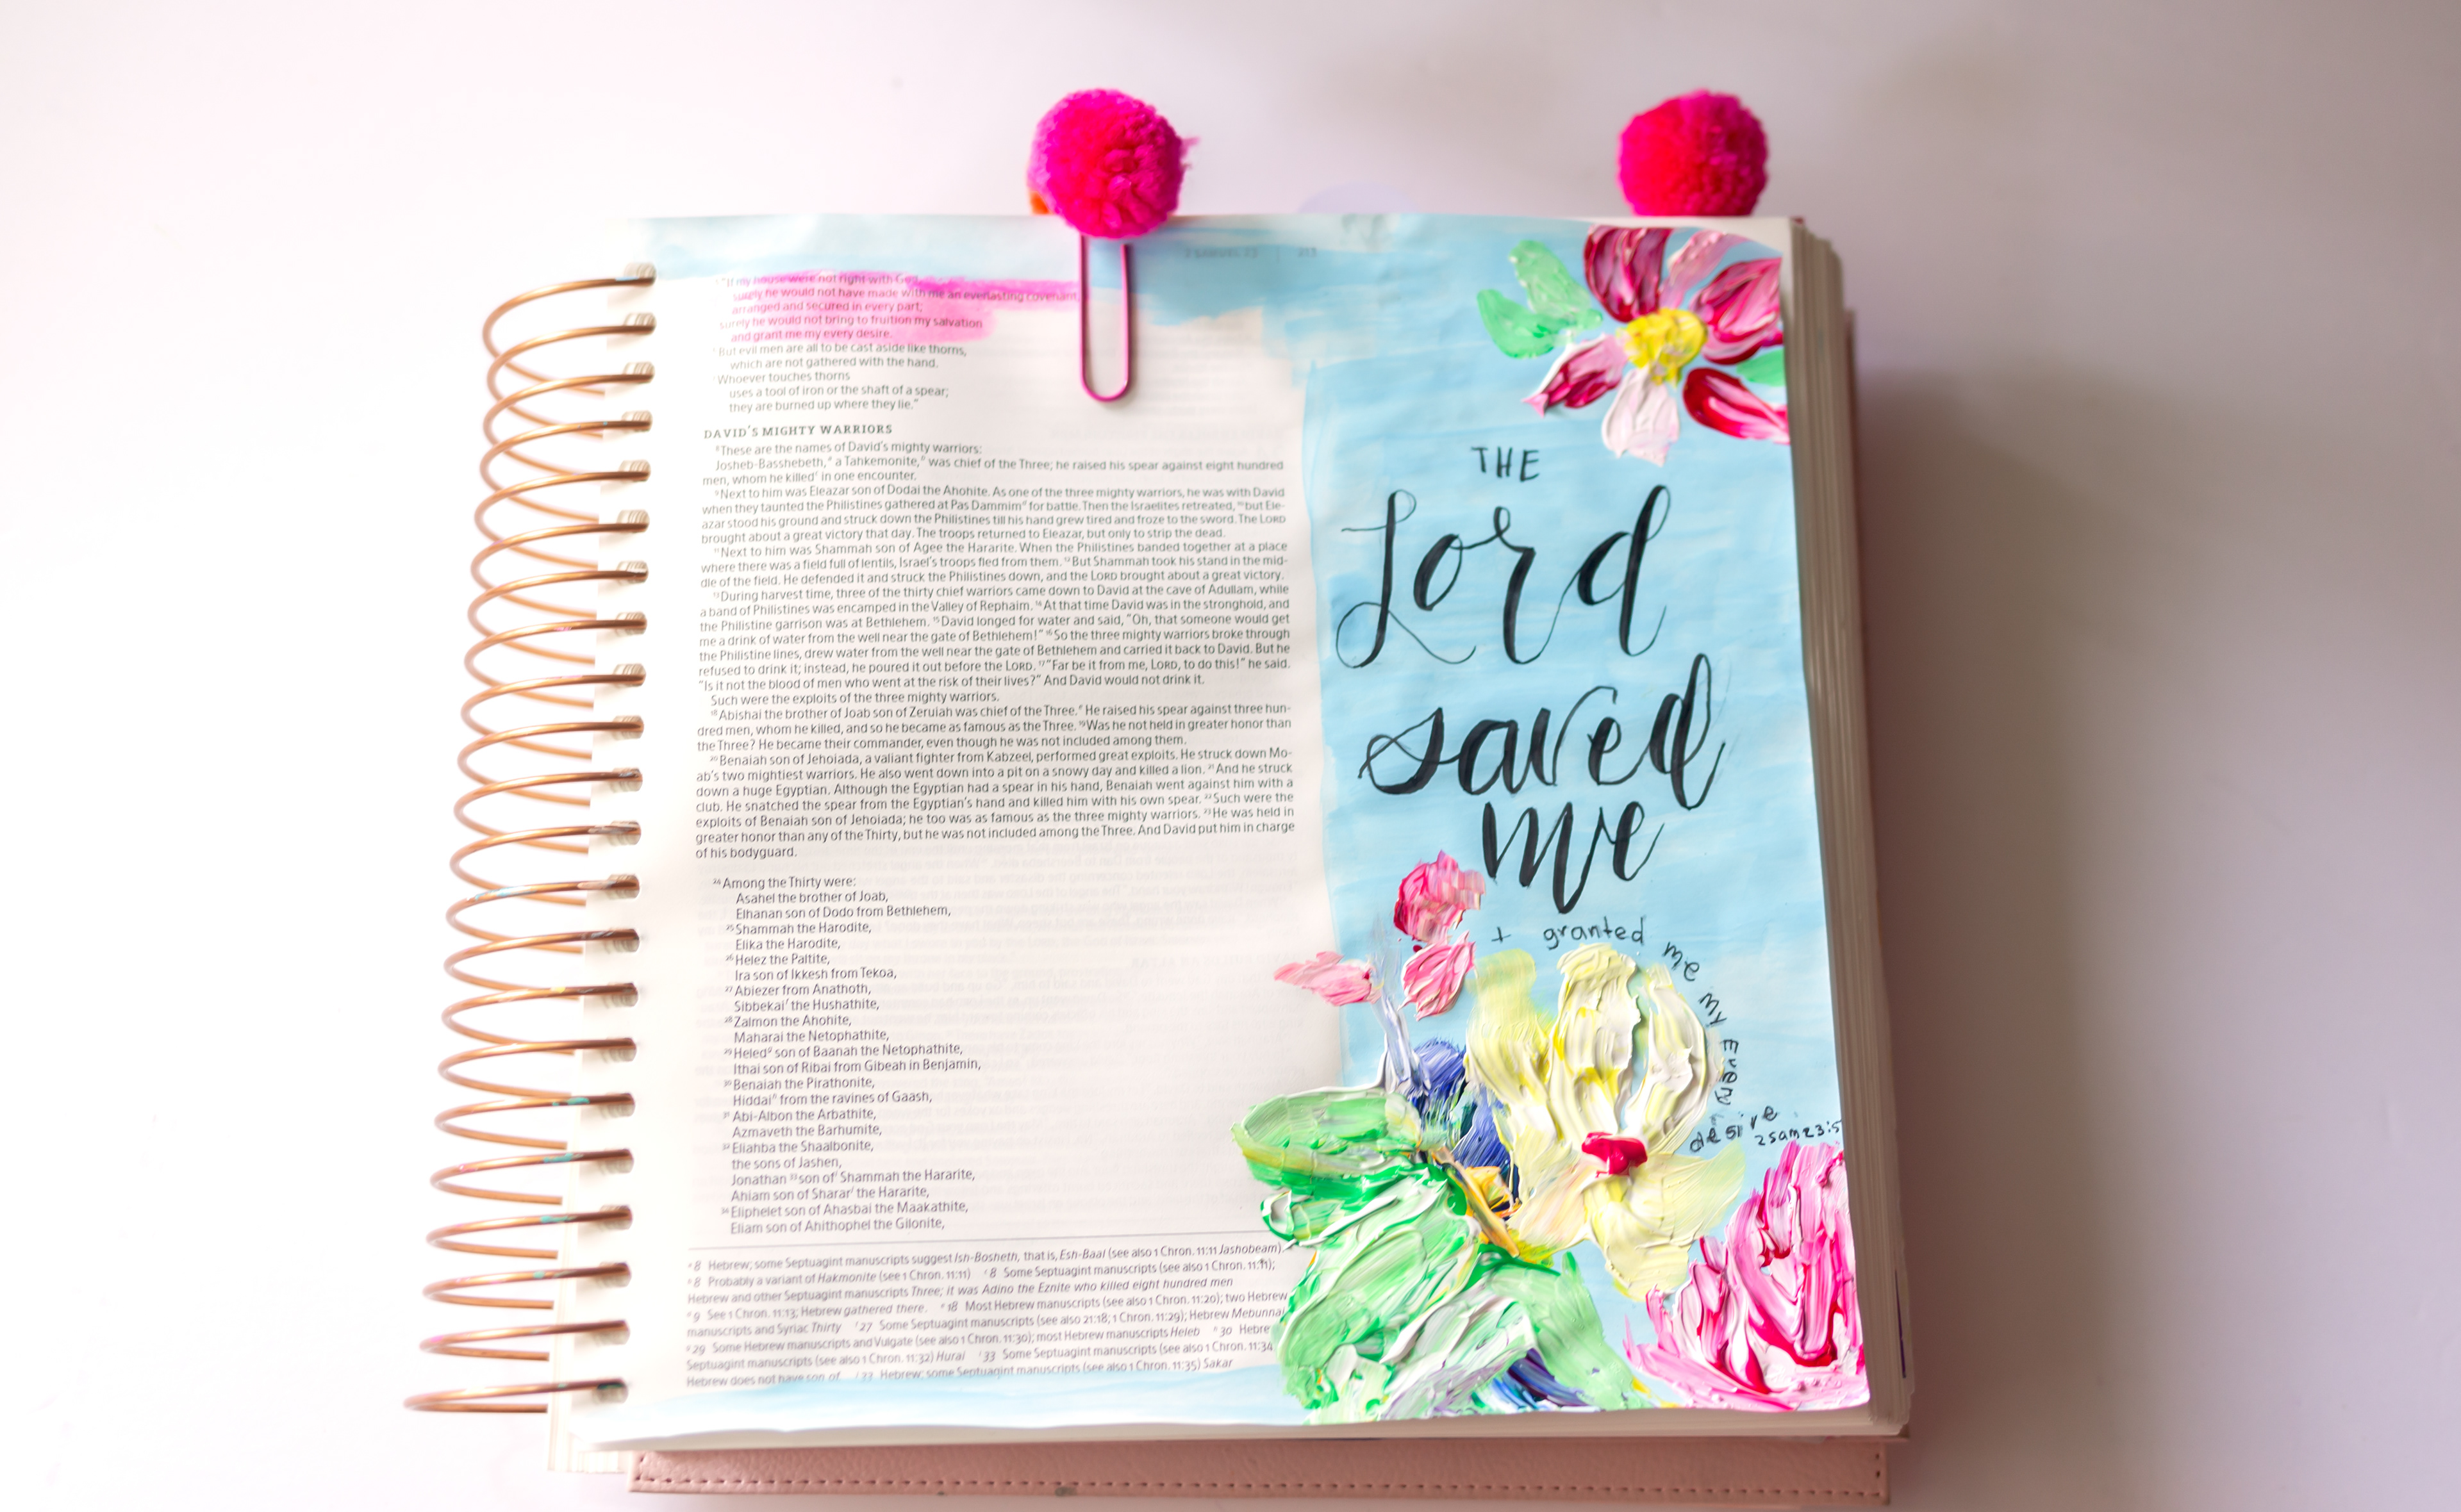 2 SAMUEL 23 | 313
"If my house were not right with God,
surely he would not have made with me an everlasting covenant,
arranged and secured in every part;
surely he would not bring to fruition my salvation
and grant me my every desire.
But evil men are all to be cast aside like thorns,
which are not gathered with the hand.
Whoever touches thorns
uses a tool of iron or the shaft of a spear;
they are burned up where they lie."
DAVID'S MIGHTY WARRIORS
⁸These are the names of David's mighty warriors:
Josheb-Basshebeth,ᵃ a Tahkemonite,ᵇ was chief of the Three; he raised his spear against eight hundred
men, whom he killedᶜ in one encounter.
⁹Next to him was Eleazar son of Dodai the Ahohite. As one of the three mighty warriors, he was with David
when they taunted the Philistines gathered at Pas Dammimᵈ for battle. Then the Israelites retreated, ¹⁰but Ele-
azar stood his ground and struck down the Philistines till his hand grew tired and froze to the sword. The LORD
brought about a great victory that day. The troops returned to Eleazar, but only to strip the dead.
¹¹Next to him was Shammah son of Agee the Hararite. When the Philistines banded together at a place
where there was a field full of lentils, Israel's troops fled from them. ¹²But Shammah took his stand in the mid-
dle of the field. He defended it and struck the Philistines down, and the LORD brought about a great victory.
¹³During harvest time, three of the thirty chief warriors came down to David at the cave of Adullam, while
a band of Philistines was encamped in the Valley of Rephaim. ¹⁴At that time David was in the stronghold, and
the Philistine garrison was at Bethlehem. ¹⁵David longed for water and said, "Oh, that someone would get
me a drink of water from the well near the gate of Bethlehem!" ¹⁶So the three mighty warriors broke through
the Philistine lines, drew water from the well near the gate of Bethlehem and carried it back to David. But he
refused to drink it; instead, he poured it out before the LORD. ¹⁷"Far be it from me, LORD, to do this!" he said.
"Is it not the blood of men who went at the risk of their lives?" And David would not drink it.
Such were the exploits of the three mighty warriors.
¹⁸Abishai the brother of Joab son of Zeruiah was chief of the Three.ᵉ He raised his spear against three hun-
dred men, whom he killed, and so he became as famous as the Three. ¹⁹Was he not held in greater honor than
the Three? He became their commander, even though he was not included among them.
²⁰Benaiah son of Jehoiada, a valiant fighter from Kabzeel, performed great exploits. He struck down Mo-
ab's two mightiest warriors. He also went down into a pit on a snowy day and killed a lion. ²¹And he struck
down a huge Egyptian. Although the Egyptian had a spear in his hand, Benaiah went against him with a
club. He snatched the spear from the Egyptian's hand and killed him with his own spear. ²²Such were the
exploits of Benaiah son of Jehoiada; he too was as famous as the three mighty warriors. ²³He was held in
greater honor than any of the Thirty, but he was not included among the Three. And David put him in charge
of his bodyguard.
²⁴Among the Thirty were:
Asahel the brother of Joab,
Elhanan son of Dodo from Bethlehem,
²⁵Shammah the Harodite,
Elika the Harodite,
²⁶Helez the Paltite,
Ira son of Ikkesh from Tekoa,
²⁷Abiezer from Anathoth,
Sibbekaiᶠ the Hushathite,
²⁸Zalmon the Ahohite,
Maharai the Netophathite,
²⁹Heledᵍ son of Baanah the Netophathite,
Ithai son of Ribai from Gibeah in Benjamin,
³⁰Benaiah the Pirathonite,
Hiddaiʰ from the ravines of Gaash,
³¹Abi-Albon the Arbathite,
Azmaveth the Barhumite,
³²Eliahba the Shaalbonite,
the sons of Jashen,
Jonathan ³³son ofⁱ Shammah the Hararite,
Ahiam son of Shararʲ the Hararite,
³⁴Eliphelet son of Ahasbai the Maakathite,
Eliam son of Ahithophel the Gilonite,
ᵃ8 Hebrew; some Septuagint manuscripts suggest Ish-Bosheth, that is, Esh-Baal (see also 1 Chron. 11:11 Jashobeam).
ᵇ8 Probably a variant of Hakmonite (see 1 Chron. 11:11) ᶜ8 Some Septuagint manuscripts (see also 1 Chron. 11:11);
Hebrew and other Septuagint manuscripts Three; it was Adino the Eznite who killed eight hundred men
ᵈ9 See 1 Chron. 11:13; Hebrew gathered there. ᵉ18 Most Hebrew manuscripts (see also 1 Chron. 11:20); two Hebrew
manuscripts and Syriac Thirty ᶠ27 Some Septuagint manuscripts (see also 21:18; 1 Chron. 11:29); Hebrew Mebunnai
ᵍ29 Some Hebrew manuscripts and Vulgate (see also 1 Chron. 11:30); most Hebrew manuscripts Heleb ʰ30 Hebrew
Septuagint manuscripts (see also 1 Chron. 11:32) Hurai ⁱ33 Some Septuagint manuscripts (see also 1 Chron. 11:34
Hebrew does not have son of. ʲ33 Hebrew; some Septuagint manuscripts (see also 1 Chron. 11:35) Sakar
THE
Lord
saved
me
+ granted me my every
desire
2sam23:5